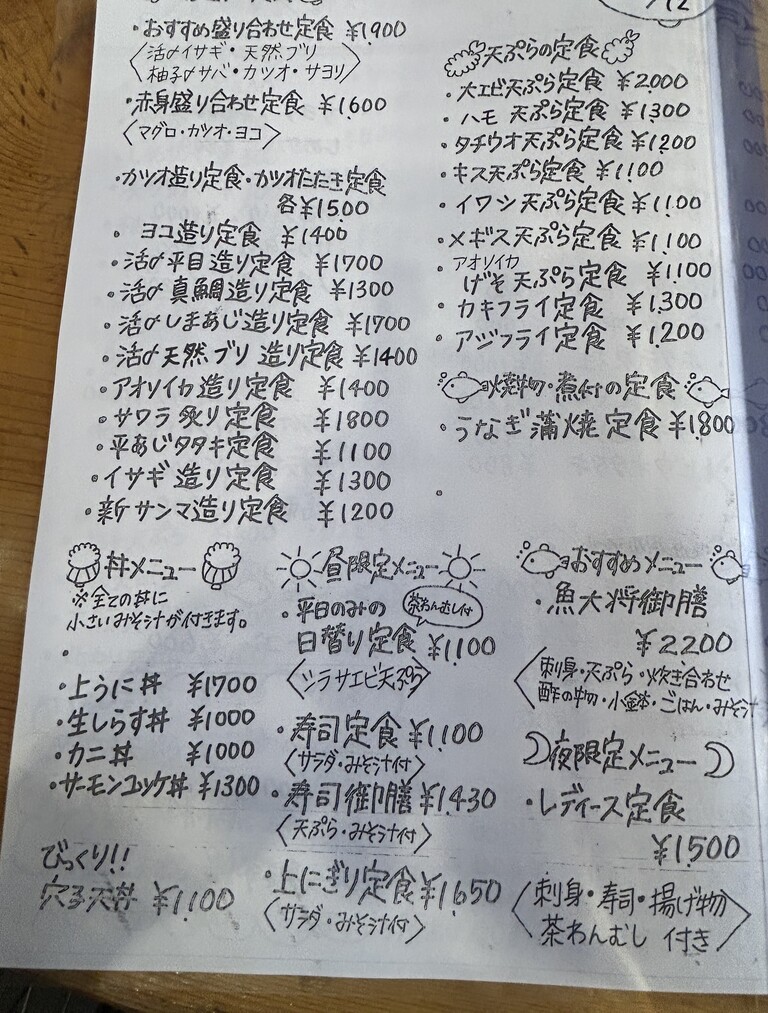 ・おすすめ盛り合わせ定食 ¥1,900
〈活〆イサギ・天然ブリ
柚子〆サバ・カツオ・サヨリ〉
・赤身盛り合わせ定食 ¥1,600
〈マグロ・カツオ・ヨコ〉
・カツオ造り定食・カツオたたき定食
各¥1,500
・ヨコ造り定食 ¥1,400
・活〆平目造り定食 ¥1700
・活〆真鯛造り定食 ¥1300
・活〆しまあじ造り定食 ¥1700
・活〆天然ブリ造り定食 ¥1400
・アオリイカ造り定食 ¥1400
・サワラ炙り定食 ¥1800
・平あじタタキ定食 ¥1100
・イサギ造り定食 ¥1300
・新サンマ造り定食 ¥1200
天ぷらの定食
・大エビ天ぷら定食 ¥2,000
・ハモ天ぷら定食 ¥1,300
・タチウオ天ぷら定食 ¥1,200
・キス天ぷら定食 ¥1,100
・イワシ天ぷら定食 ¥1,100
・メギス天ぷら定食 ¥1,100
アオリイカ
・げそ天ぷら定食 ¥1,100
・カキフライ定食 ¥1,300
・アジフライ定食 ¥1,200
焼物・煮付の定食
・うなぎ蒲焼定食 ¥1,800
丼メニュー
※全ての丼に
小さいみそ汁が付きます。
・上うに丼 ¥1700
・生しらす丼 ¥1000
・カニ丼 ¥1000
・サーモンユッケ丼 ¥1300
びっくり!!
穴子天丼 ¥1,100
昼限定メニュー
・平日のみの 茶わんむし付
日替り定食 ¥1,100
〈シラサエビ天ぷら〉
・寿司定食 ¥1,100
〈サラダ・みそ汁付〉
・寿司御膳 ¥1,430
〈天ぷら・みそ汁付〉
・上にぎり定食 ¥1,650
〈サラダ・みそ汁付〉
おすすめメニュー
・魚大将御膳
¥2200
〈刺身・天ぷら・炊き合わせ
酢の物・小鉢・ごはん・みそ汁
夜限定メニュー
・レディース定食
¥1,500
〈刺身・寿司・揚げ物
茶わんむし 付き〉